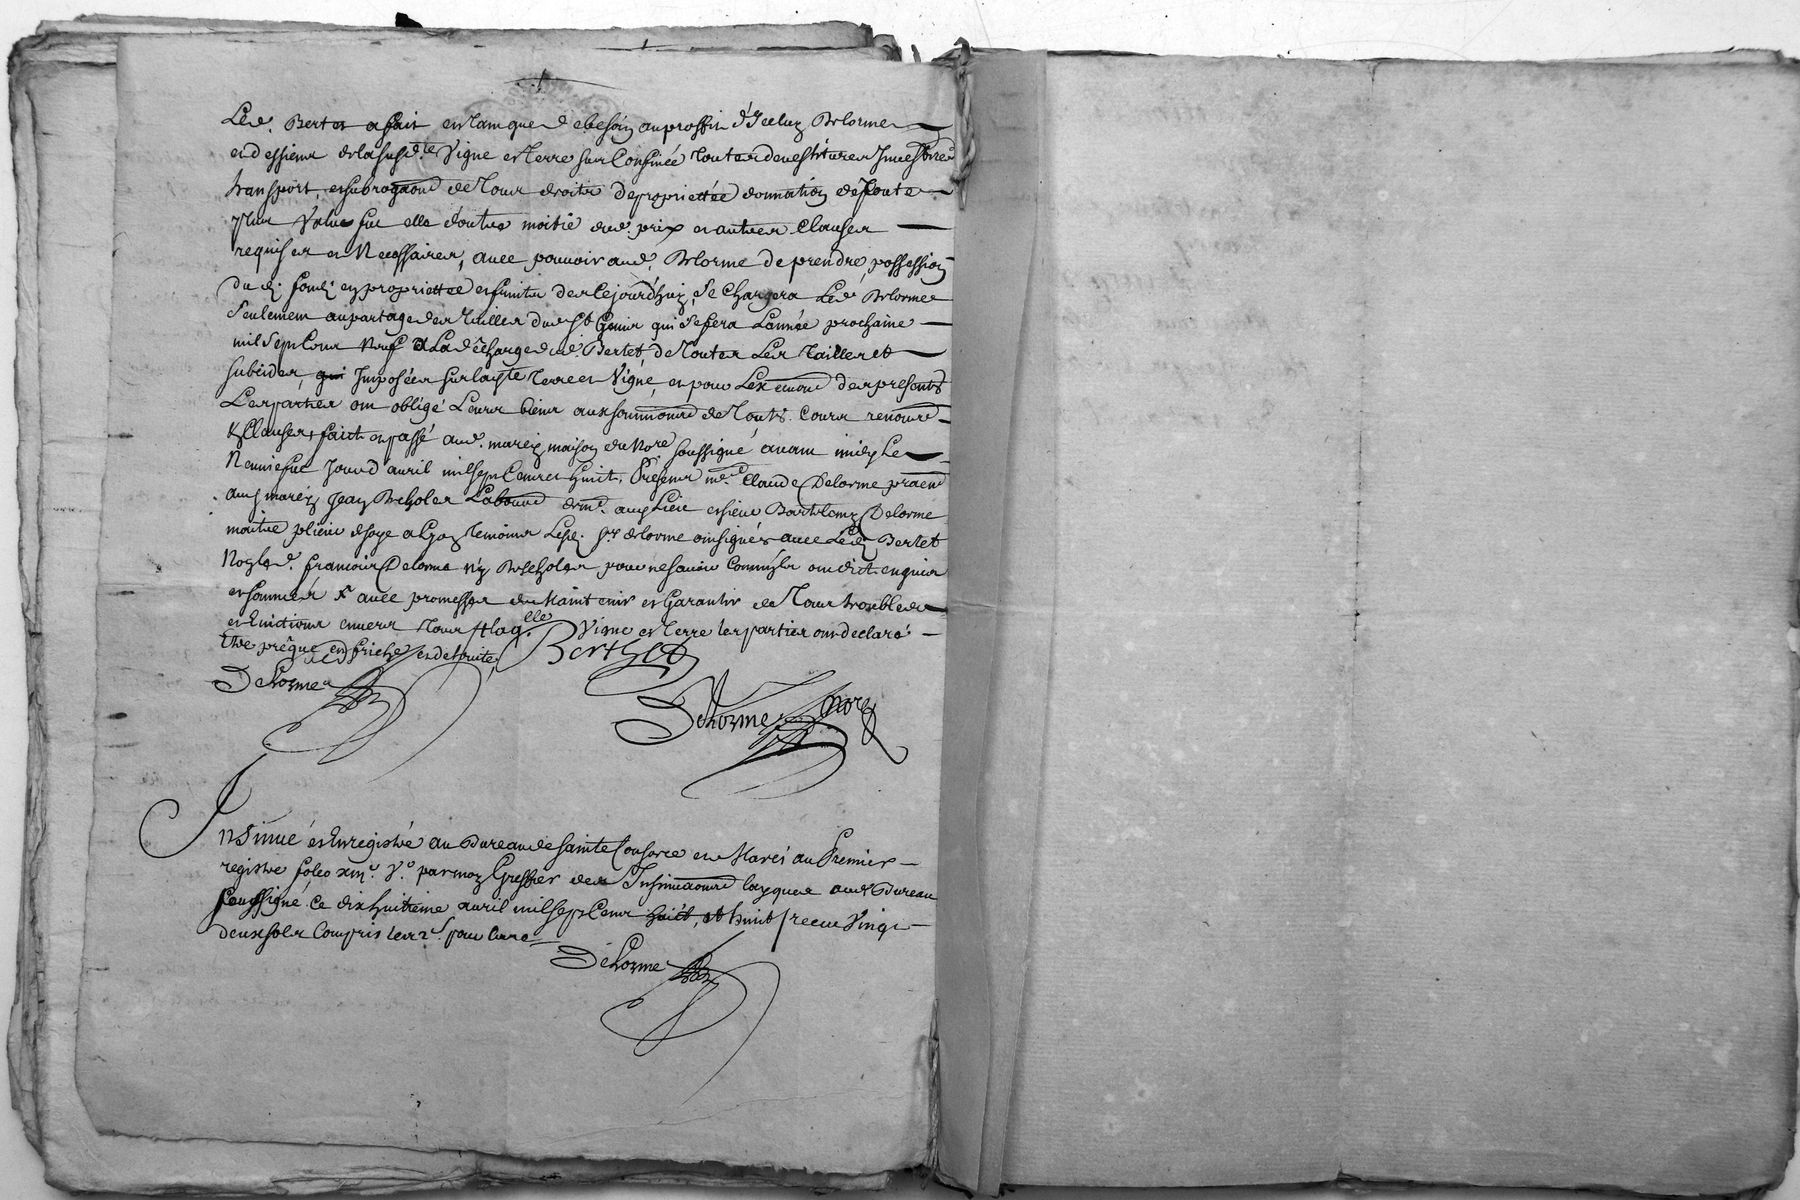 Led. Bertet a fait en tant que de besoin au proffit d'Iceluy Delorme
et des siens de la susd.te Vigne et Terre sur Confinée toutes devestitures Investitures
transport, et subrogaõns de tous droits de proprietée donnation de toute
plus Value fut elle d'outre moitié dud. prix et autres Clauses
requises et Necessaires, avec pouvoir aud. Delorme de prendre possession
du d. fond en proprietée et fruits des ce jourd'huy, se Chargera Led. Delorme
seulement au partage des Tailles dud St Genis qui se fera L'année prochaine
mil sept Cent Neuf a La décharge dud. Bertet, de toutes Les Tailles et
subsides, qui Imposées sur lad. Terre et Vigne, et pour L'ex.on des presents
Les parties ont obligé Leurs biens aux soumissions de Touts. Cours renon.ns
& Clauses, fait et passé aud. marcy maison du No.re soussigné avant midy Le
Neuviesme Jour d avril mil sept Cents huit, Presents me. Claude Delorme
aud marcy Jean Bicholes Laboureur dud. Lieu et sieur Bartelemy Delorme
maitre plieur de soye a Lyon temoins Les. Srs delorme ont signés avec Led Bertet
Non led. francois Delorme ny Bicholes pour ne savoir Comm'ils ont dict enquis
et sommés & avec promesses de Maintenir et Garantir de Tous troubles
et Evictions envers Tous & laq.lle Vigne et Terre les parties ont declaré
Etre prêque en friche et detruite. Berthet
DeLorme
DeLorme Nore
Insinué et Enregistré au Bureau de Sainte Consorce et Marci au Premier
registre folio xiij. V.o par moy Greffier des Insinuaõns layques aud Bureau
soussigné ce dix huitieme avril mil sept Cent huict, et huit / receu Vingt
deux sols Compris les 2 s. pour livre
DeLorme